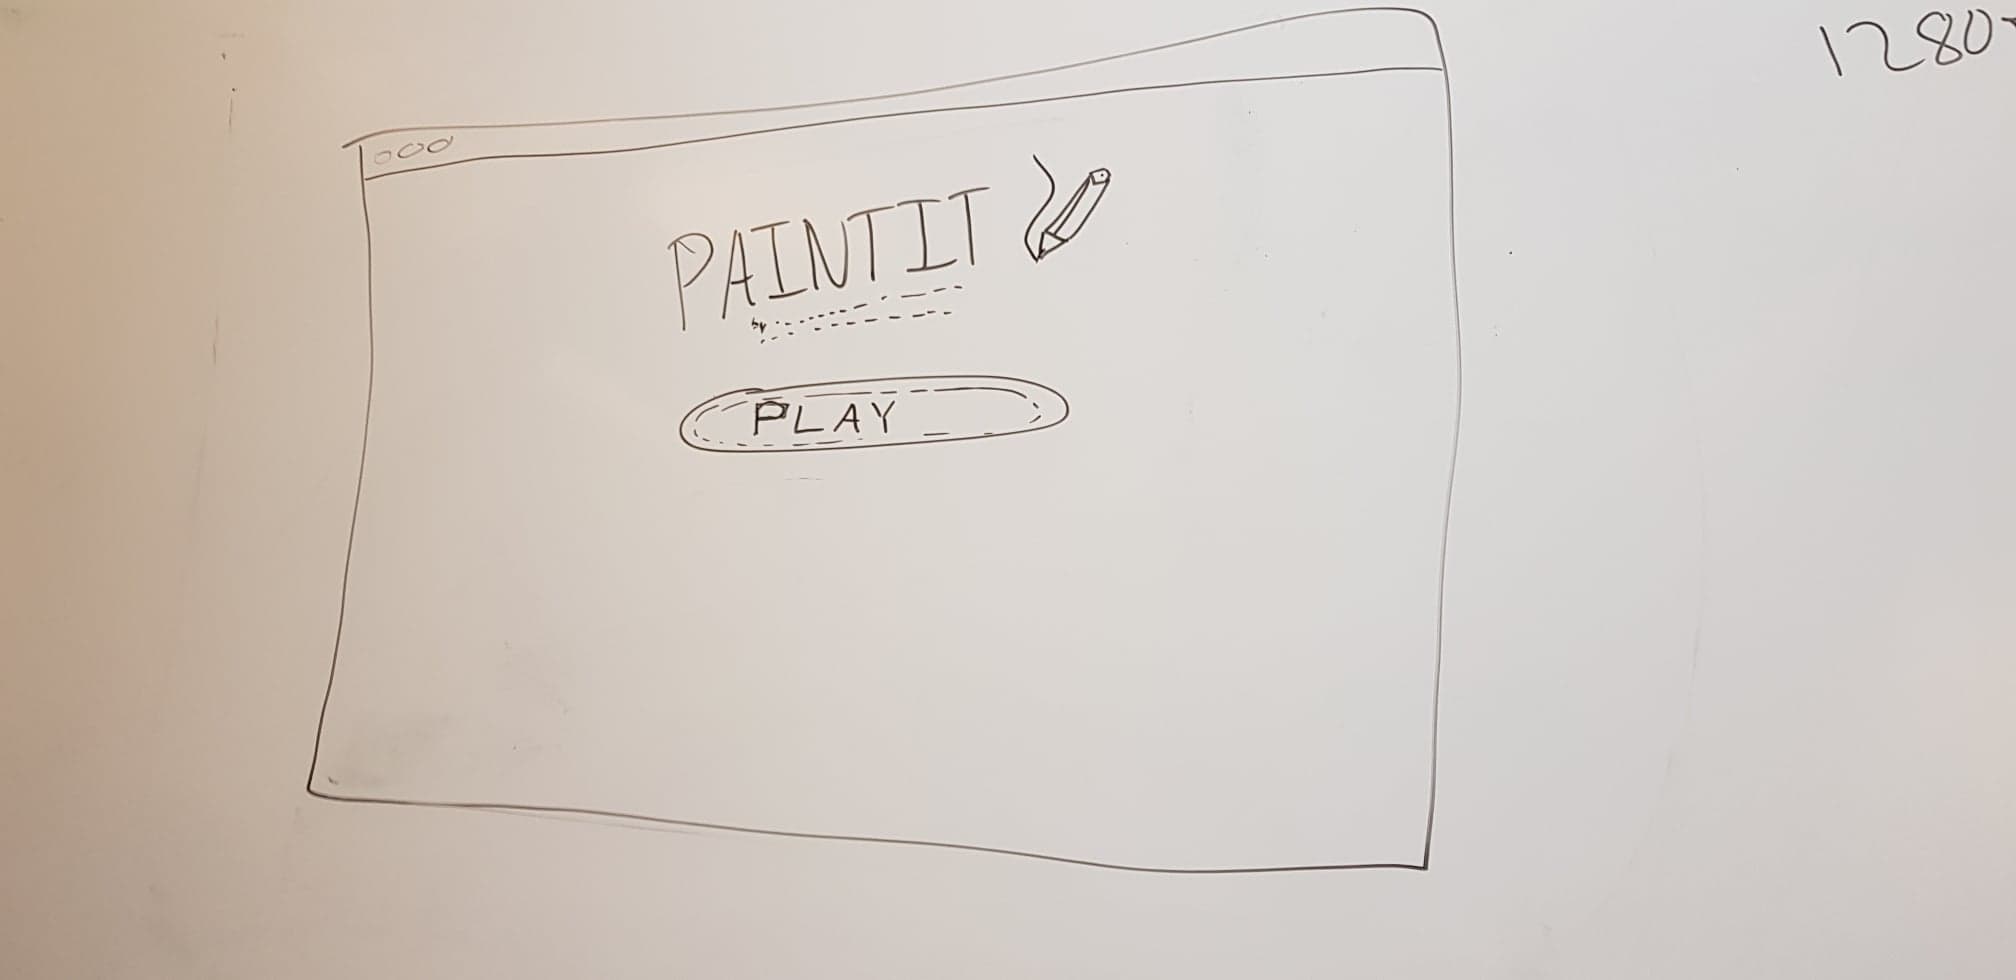 1280
PAINTIT
by
PLAY